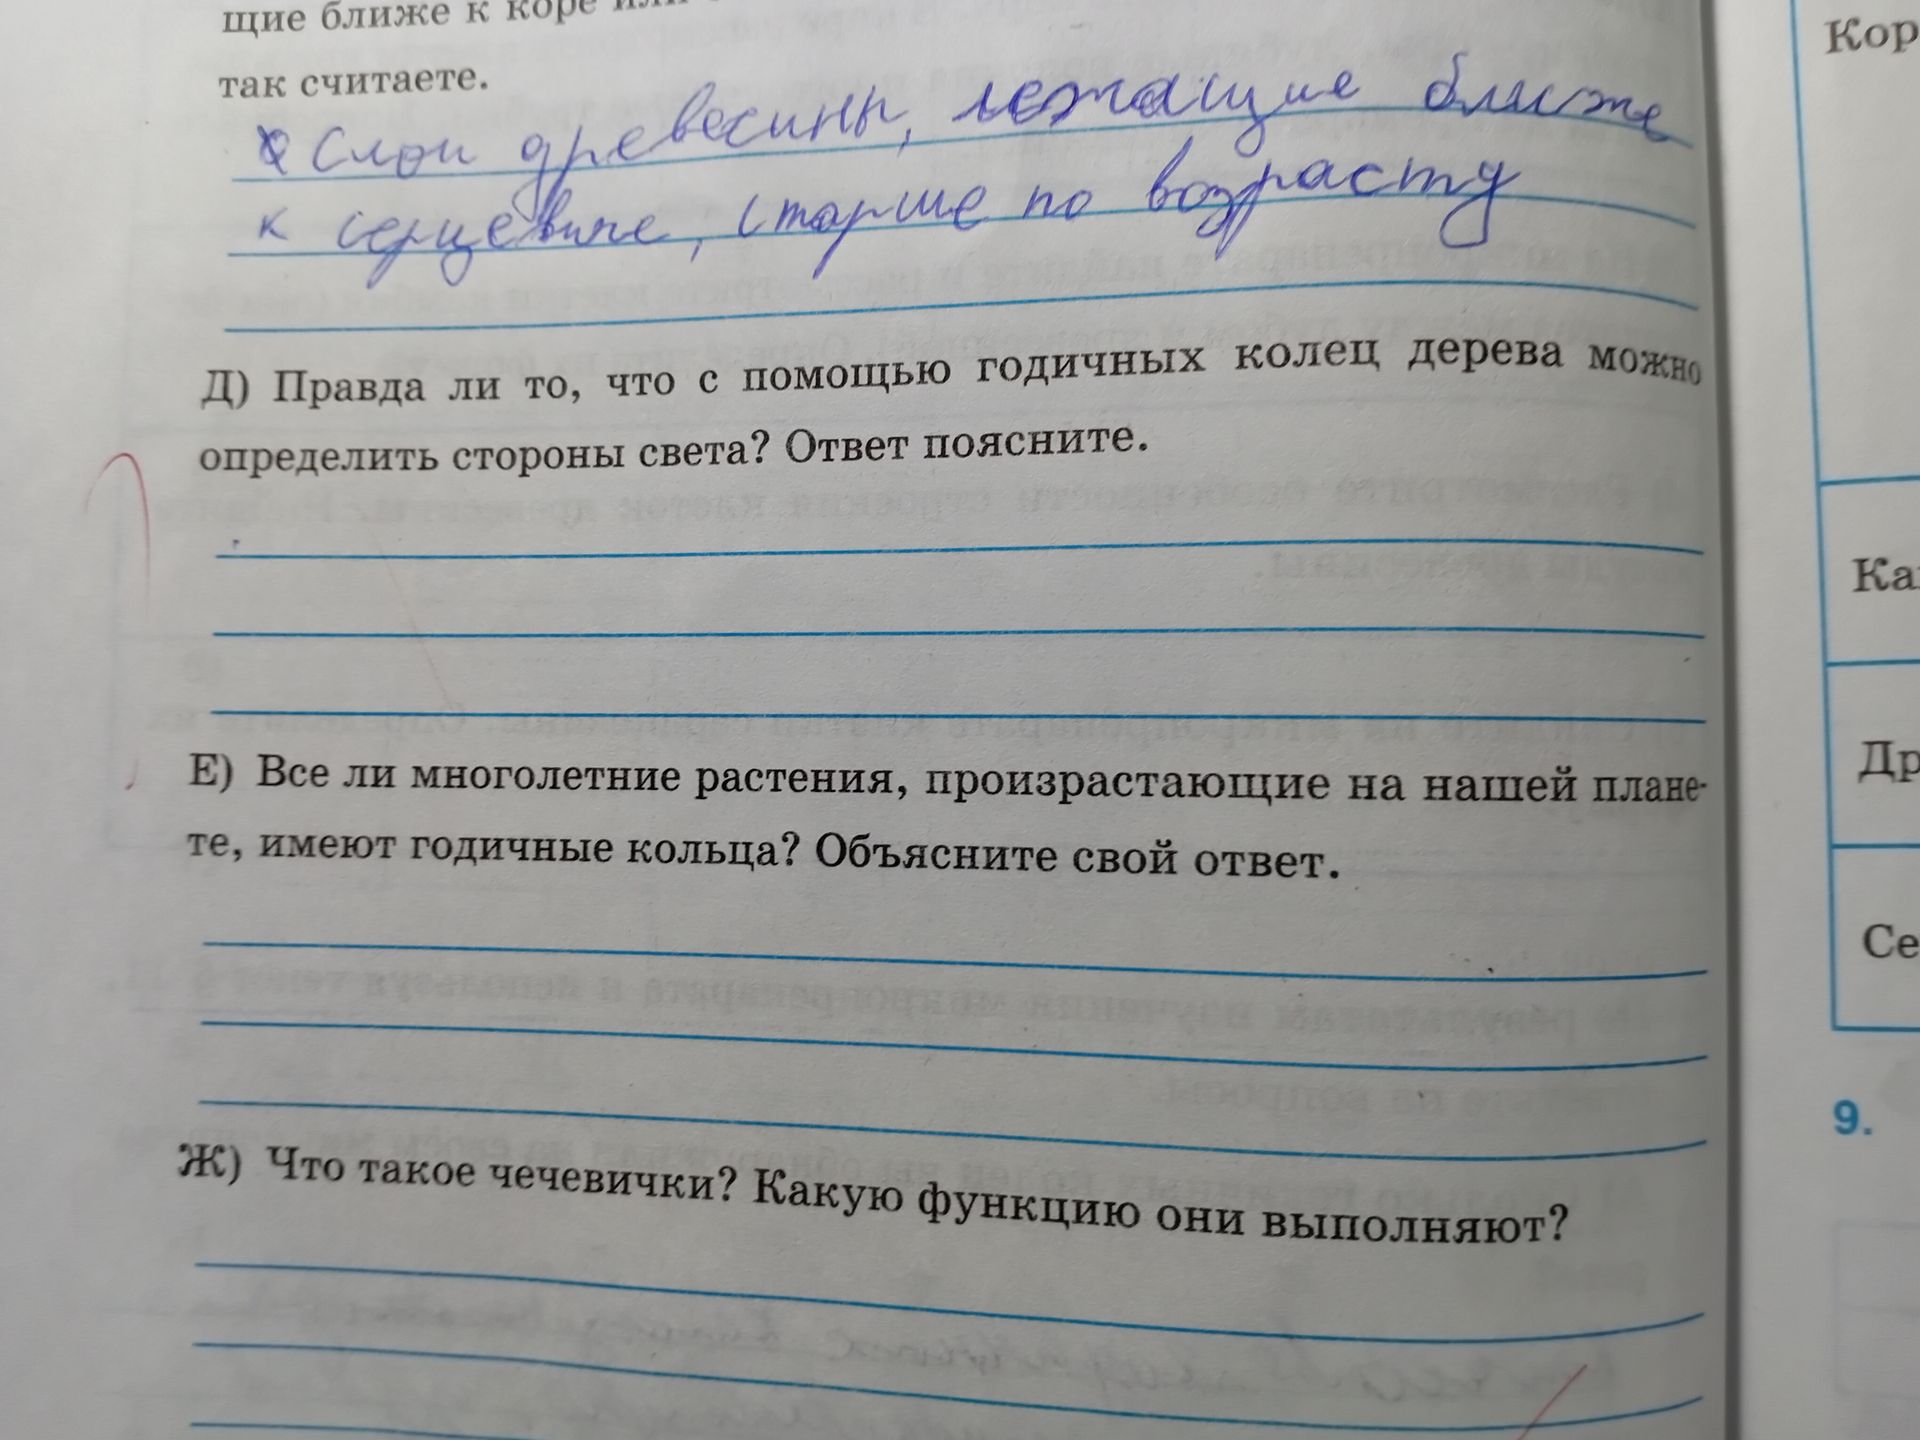 щие ближе к коре или
так считаете.
Слои древесины, лежащие ближе
к сердцевине, старше по возрасту
Д) Правда ли то, что с помощью годичных колец дерева можно
определить стороны света? Ответ поясните.
Е) Все ли многолетние растения, произрастающие на нашей плане-
те, имеют годичные кольца? Объясните свой ответ.
Ж) Что такое чечевички? Какую функцию они выполняют?
Кор
Ка
Др
Се
9.